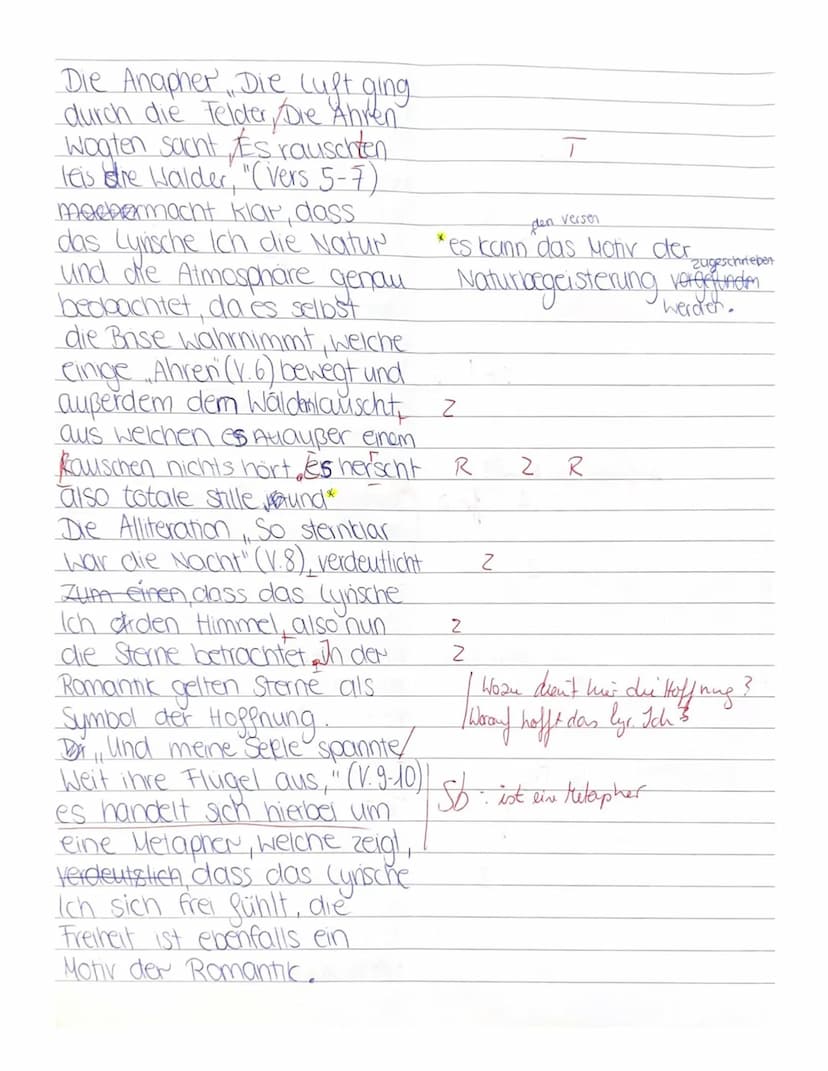 Die Anapher „Die Luft ging
durch die Felder,/Die Ähren
wogten sacht,/Es rauschten T
leis die Wälder,"(Vers 5-7)
macht klar, dass
das Lyrische Ich die Natur
und die Atmosphäre genau
beobachtet, da es selbst
die Brise wahrnimmt, welche
einige „Ähren"(V.6) bewegt und
außerdem dem Wäldern lauscht, Z
aus welchen es außer einem
Rauschen nichts hört. Es herrscht R Z R
also totale stille und*
den Versen
*es kann das Motiv der
zugeschrieben
Naturbegeisterung vorgefunden
werden.
Die Alliteration „So sternklar
war die Nacht" (V.8), verdeutlicht Z
zum einen, dass das Lyrische
Ich den Himmel, also nun Z
die Sterne betrachtet. In der Z
Romantik gelten Sterne als
Symbol der Hoffnung.
Wozu dient hier die Hoffnung?
Worauf hofft das lyr. Ich?
„Und meine Seele spannte/
Weit ihre Flügel aus," (V.9-10)
es handelt sich hierbei um
Sb: ist eine Metapher
eine Metapher, welche zeigt,
verdeutzlich, dass das Lyrische
Ich sich frei fühlt, die
Freiheit ist ebenfalls ein
Motiv der Romantik.